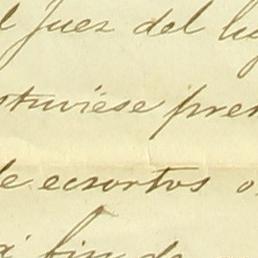 l Juez del lu
stuviese pre
de ecsortos o
a fin de